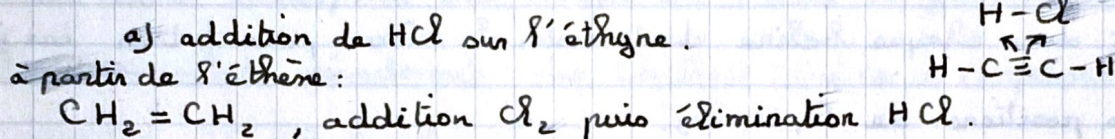 H-Cl
a) addition de HCl sur l'éthyne.
H-C≡C-H
à partir de l'éthène:
CH₂=CH₂, addition Cl₂ puis élimination HCl.